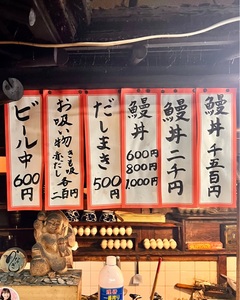 鰻丼 千五百円
鰻丼 二千円
鰻丼
600円
800円
1,000円
だしまき
500円
お吸い物
きも吸
赤だし
各二百円
ビール中
600円